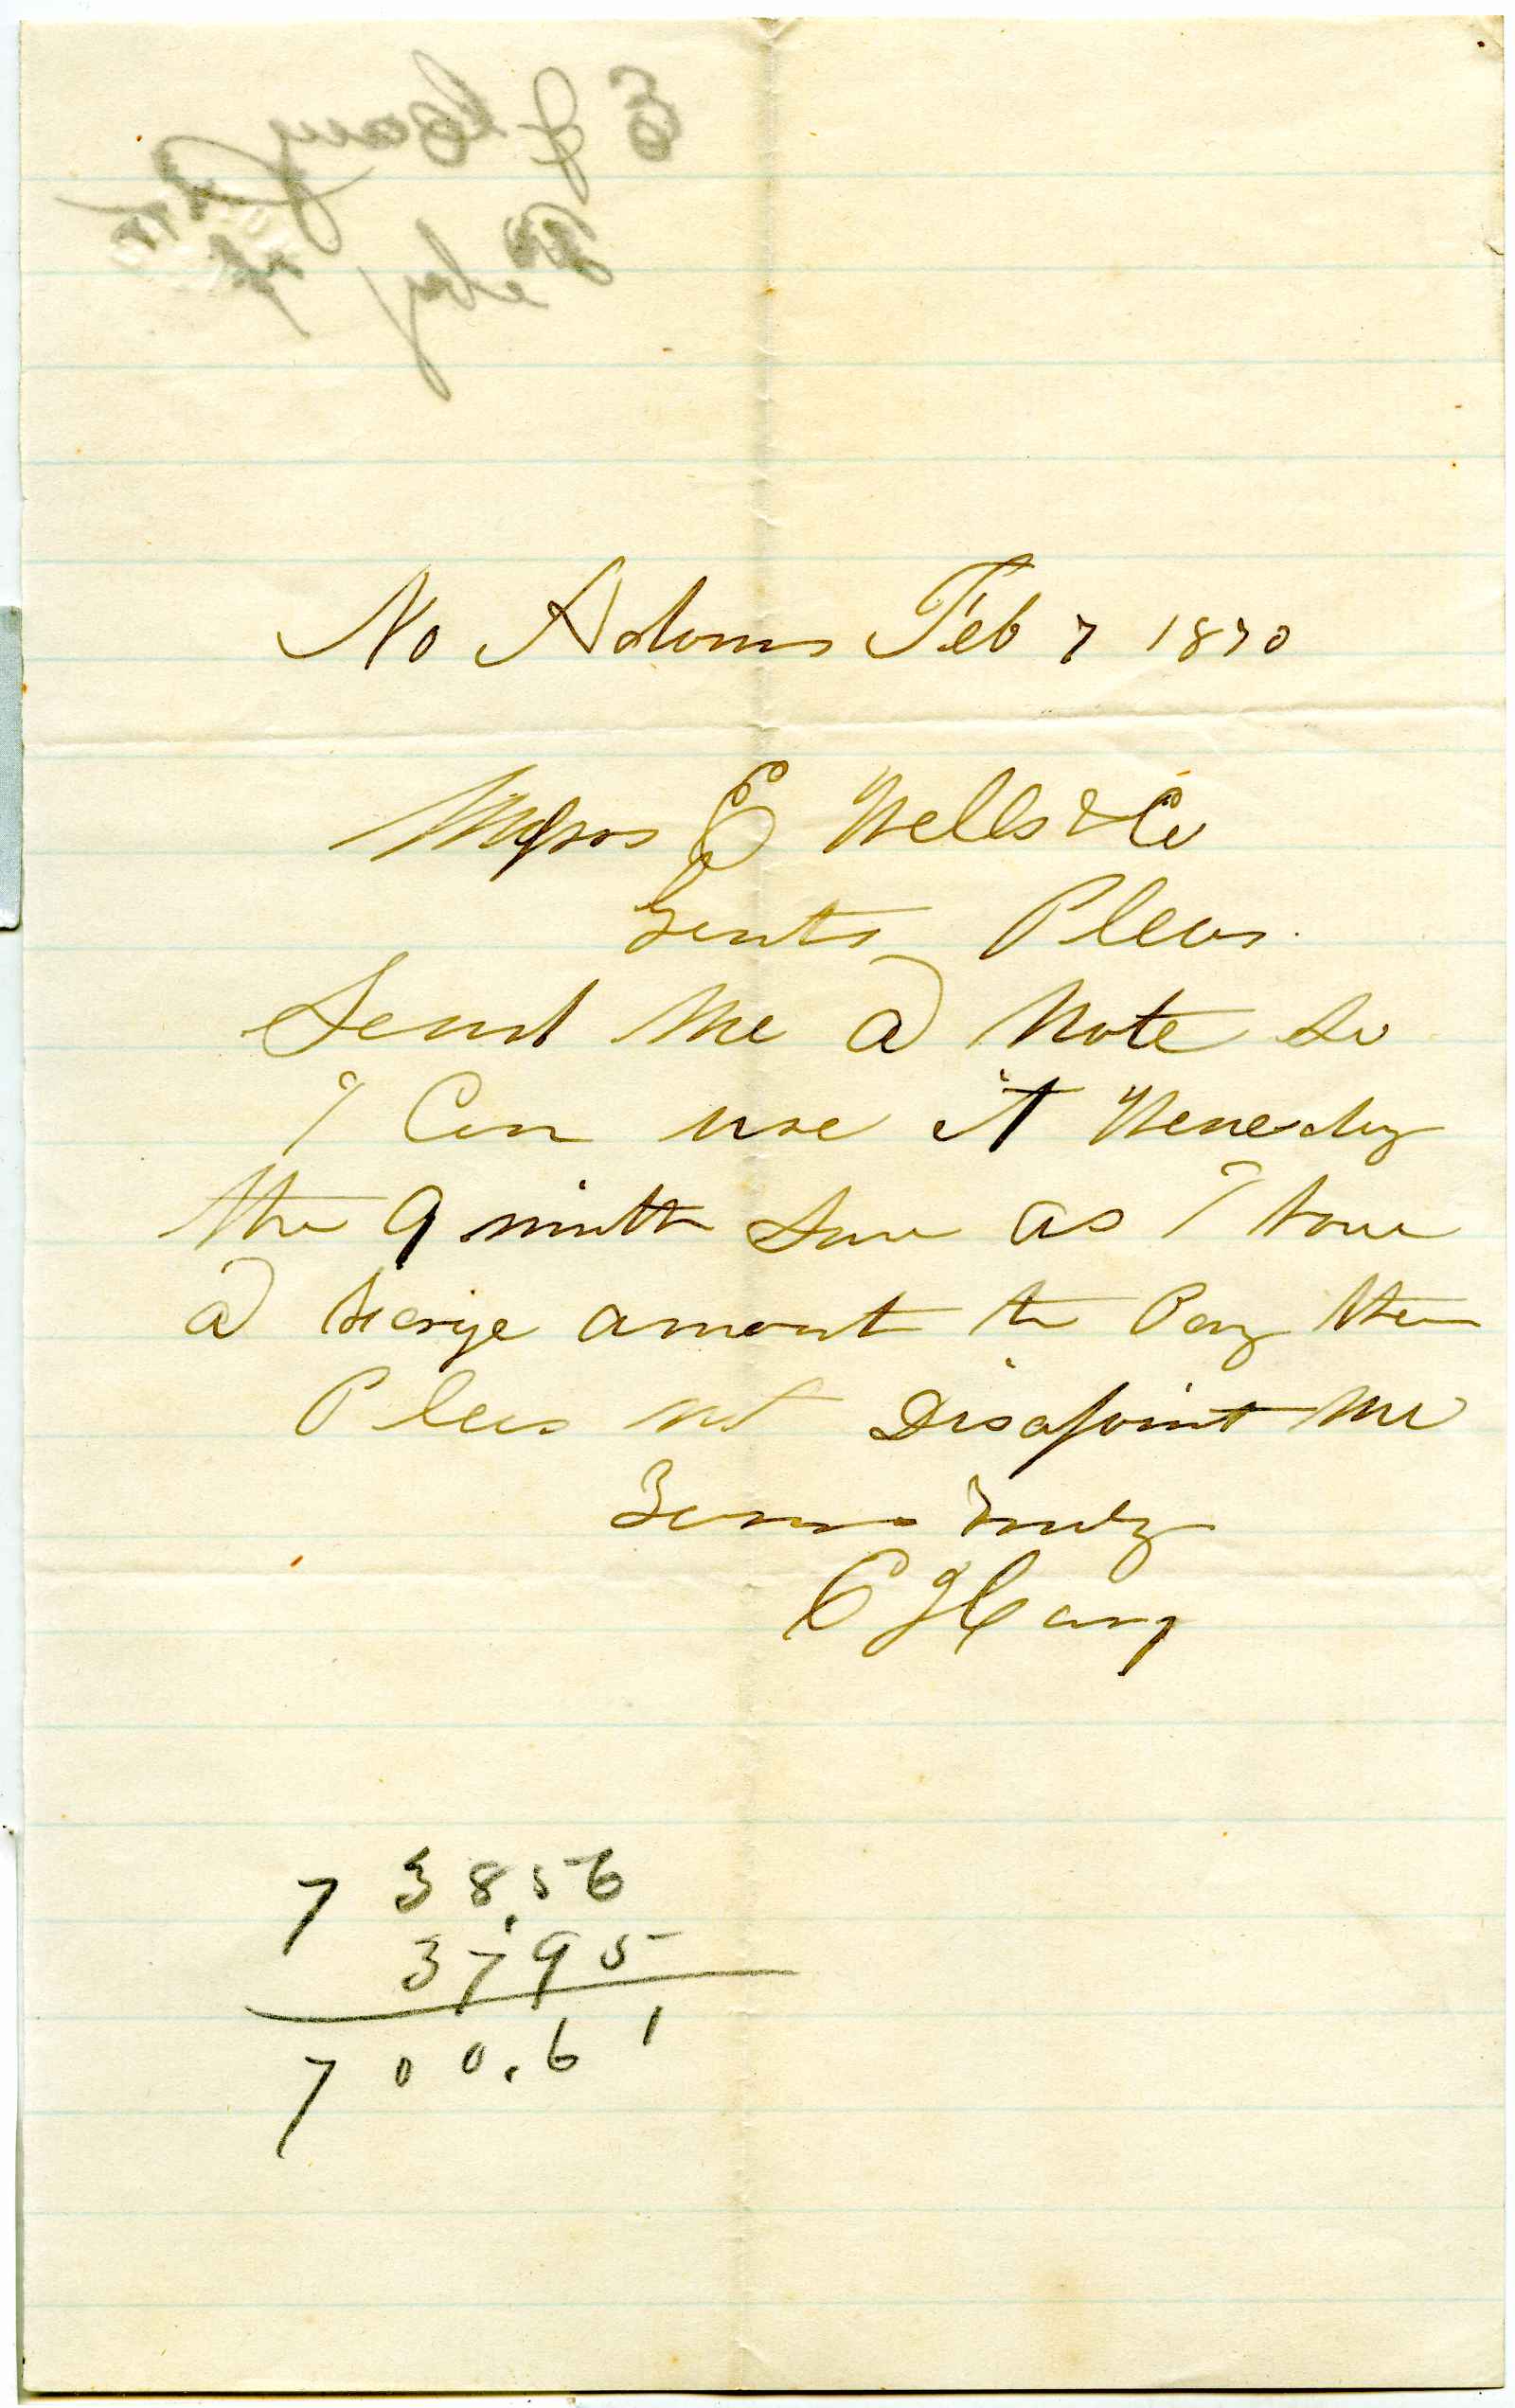 E J Cary
Feby 7
No Adams Feb 7 1870
Messrs E Wells & Co
Gents Pleas
Send Me a Note So
I Can use it Wenesday
the 9 ninth Sure as I have
a Large amount to Pay then
Pleas not Disapoint Me
Yours Truly
E J Cary
738.56
3795
700.61